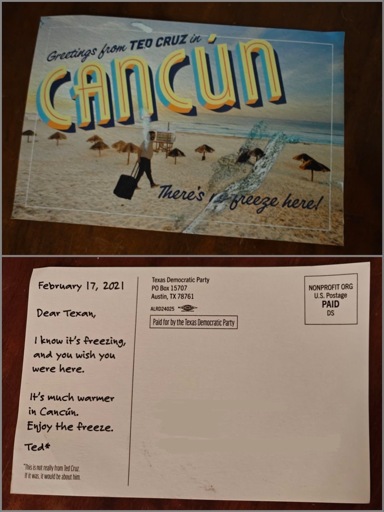 Greetings from TED CRUZ in
CANCÚN
There's freeze here!
February 17, 2021
Dear Texan,
I know it's freezing,
and you wish you
were here.
It's much warmer
in Cancún.
Enjoy the freeze.
Ted*
*This is not really from Ted Cruz.
If it was, it would be about him.
Texas Democratic Party
PO Box 15707
Austin, TX 78761
ALRD24025
Paid for by the Texas Democratic Party
NONPROFIT ORG
U.S. Postage
PAID
DS